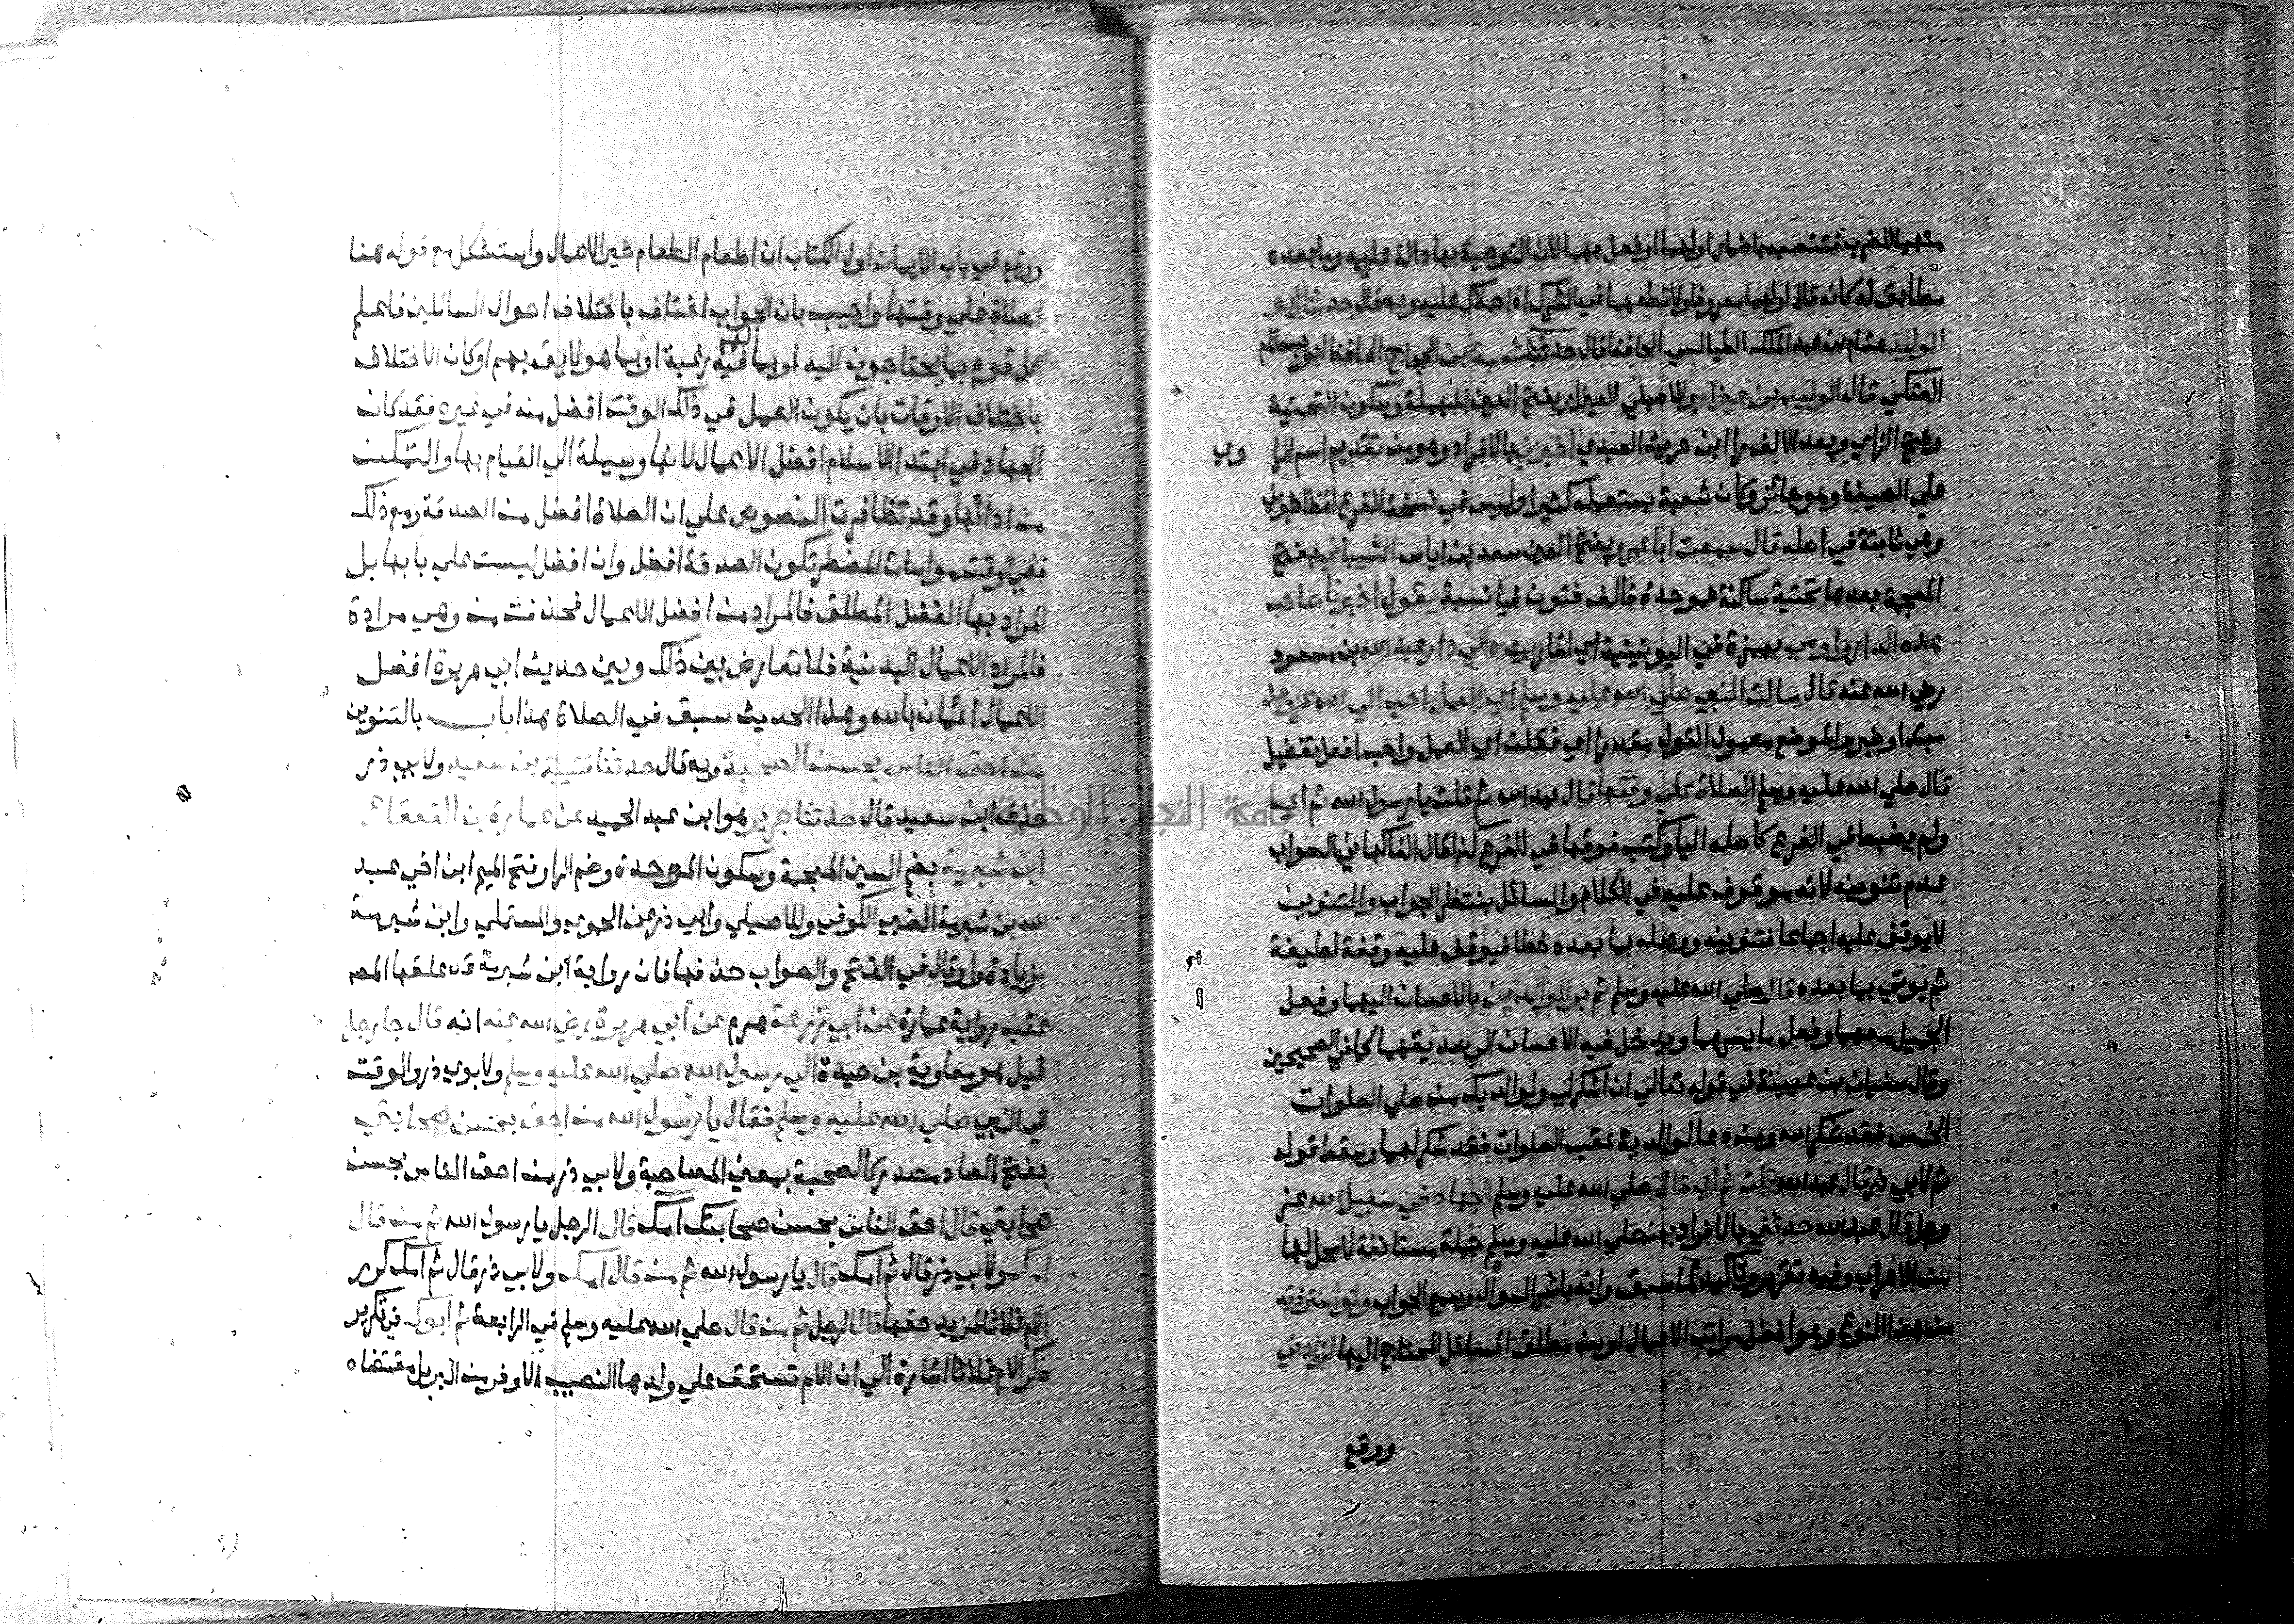 مطابق له كانه قال اولهما معروفا ولا تطعهما في الشرك اذا حملاك عليه وبه قال حدثنا ابو
الوليد هشام بن عبد الملك الطيالسي الحافظ قال حدثنا شعبة بن الحجاج الحافظ ابو بسطام
العتكي قال الوليد بن عيزار وللاصيلي العيزار بفتح العين المهملة وسكون التحتية
وفتح الزاي وبعد الالف را ابن حريث العبدي اخبرني بالافراد وهو من تقديم اسم الراوي
علي الصيغة وهو جائز وكان شعبة يستعمله كثيرا وليس في نسخة الفرع لفظ اخبرني
وهي ثابتة في اصله قال سمعت ابا عمرو بفتح العين سعد بن اياس الشيباني بفتح
المعجمة بعدها تحتية ساكنة فموحدة فالف فنون فيا نسبة يقول اخبرنا صاحب
هذه الدار واومي بهمزة في اليونينية اي اشار بيده الي دار عبد الله بن مسعود
رضي الله عنه قال سالت النبي صلي الله عليه وسلم اي العمل احب الي الله عز وجل
مبتدا وخبر والموضع معمول القول مقدرا اي فقلت اي العمل واحب افعل تفضيل
قال صلي الله عليه وسلم الصلاة علي وقتها قال عبد الله ثم قلت يا رسول الله ثم اي
ولم يضبطها في الفرع كاصله اليا وكتب فوقها في الفرع كذا قال الفاكهاني الصواب
عدم تنوينه لانه موقوف عليه في الكلام والسائل ينتظر الجواب والتنوين
لا يوقف عليه اجماعا فتنوينه ووصله بما بعده خطا فيوقف عليه وقفة لطيفة
ثم يوتي بما بعده قال صلي الله عليه وسلم ثم بر الوالدين بالاحسان اليهما وفعل
الجميل معهما وفعل ما يسرهما ويدخل فيه الاحسان الي صديقهما كما في الصحيحين
وقال سفيان بن عيينة في قوله تعالي ان اشكر لي ولوالديك من صلي الصلوات
الخمس فقد شكر الله ومن دعا لوالديه عقب الصلوات فقد شكر لهما وسقط قوله
ثم لابي ذر قال عبد الله قلت ثم اي قال صلي الله عليه وسلم الجهاد في سبيل الله عز
وجل قال عبد الله حدثني بالافراد بهن صلي الله عليه وسلم جملة مستانفة لا محل لها
من الاعراب وفيه تقرير وتاكيد لما سبق وانه باشر السوال وسمع الجواب ولو استزدته
من هذا النوع وهو افضل مراتب الاعمال او من مطلق المسائل المحتاج اليها لزادني
ووقع
ووقع في باب الايمان اول الكتاب ان اطعام الطعام خير الاعمال واستشكل مع قوله هنا
الصلاة علي وقتها واجيب بان الجواب اختلف باختلاف احوال السائلين فاعلم
كل قوم بما يحتاجون اليه او بما لهم فيه رغبة او بما هو لايق بهم او كان الاختلاف
باختلاف الاوقات بان يكون العمل في ذلك الوقت افضل منه في غيره فقد كان
الجهاد في ابتدا الاسلام افضل الاعمال لانها وسيلة الي القيام بها والتمكن
من ادائها وقد تظافرت النصوص علي ان الصلاة افضل من الصدقة ومع ذلك
ففي وقت مواسات المضطر تكون الصدقة افضل وان افضل ليست علي بابها بل
المراد بها الفضل المطلق فالمراد من افضل الاعمال فحذفت من وهي مرادة
فالمراد الاعمال البدنية فلا تعارض بين ذلك وبين حديث ابي هريرة افضل
الاعمال ائمان بالله وهذا الحديث سبق في الصلاة هذا باب بالتنوين
من احق الناس بحسن الصحبة وبه قال حدثنا قتيبة بن سعيد ولابي ذر
حذف ابن سعيد قال حدثنا جرير هو ابن عبد الحميد عن عمارة بن القعقاع
ابن شبرمة بضم السين المعجمة وسكون الموحدة وضم الرا وفتح الميم ابن اخي عبد
الله بن شبرمة الضبي الكوفي وللاصيلي وابي ذر عن الحموي والمستملي وابن شبرمة
بزيادة واو قال في الفتح والصواب حذفها فان رواية ابن شبرمة قد علقها المصـ
عقب رواية عمارة عن ابي زرعة هرم عن أبي هريرة رضي الله عنه انه قال جا رجل
قيل هو معاوية بن حيدة الي رسول الله صلي الله عليه وسلم ولابوي ذر والوقت
الي النبي صلي الله عليه وسلم فقال يا رسول الله من احق بحسن صحابتي
بفتح الصاد مصدر كالصحبة بمعني المصاحبة ولابي ذر من احق الناس بحسن
صحابتي قال احق الناس بحسن صحابتك امك قال الرجل يا رسول الله ثم من قال
امك ولابي ذر قال ثم امك قال يا رسول الله ثم من قال امك ولابي ذر قال ثم امك كرر
الام ثلاثا لمزيد حقها قال الرجل ثم من قال صلي الله عليه وسلم في الرابعة ثم ابوك في تكرير
ذكر الام ثلاثا اشارة الي ان الام تستحق علي ولدها النصيب الاوفر من البر بل مقتضاه
جامعة النجاح الوطنية